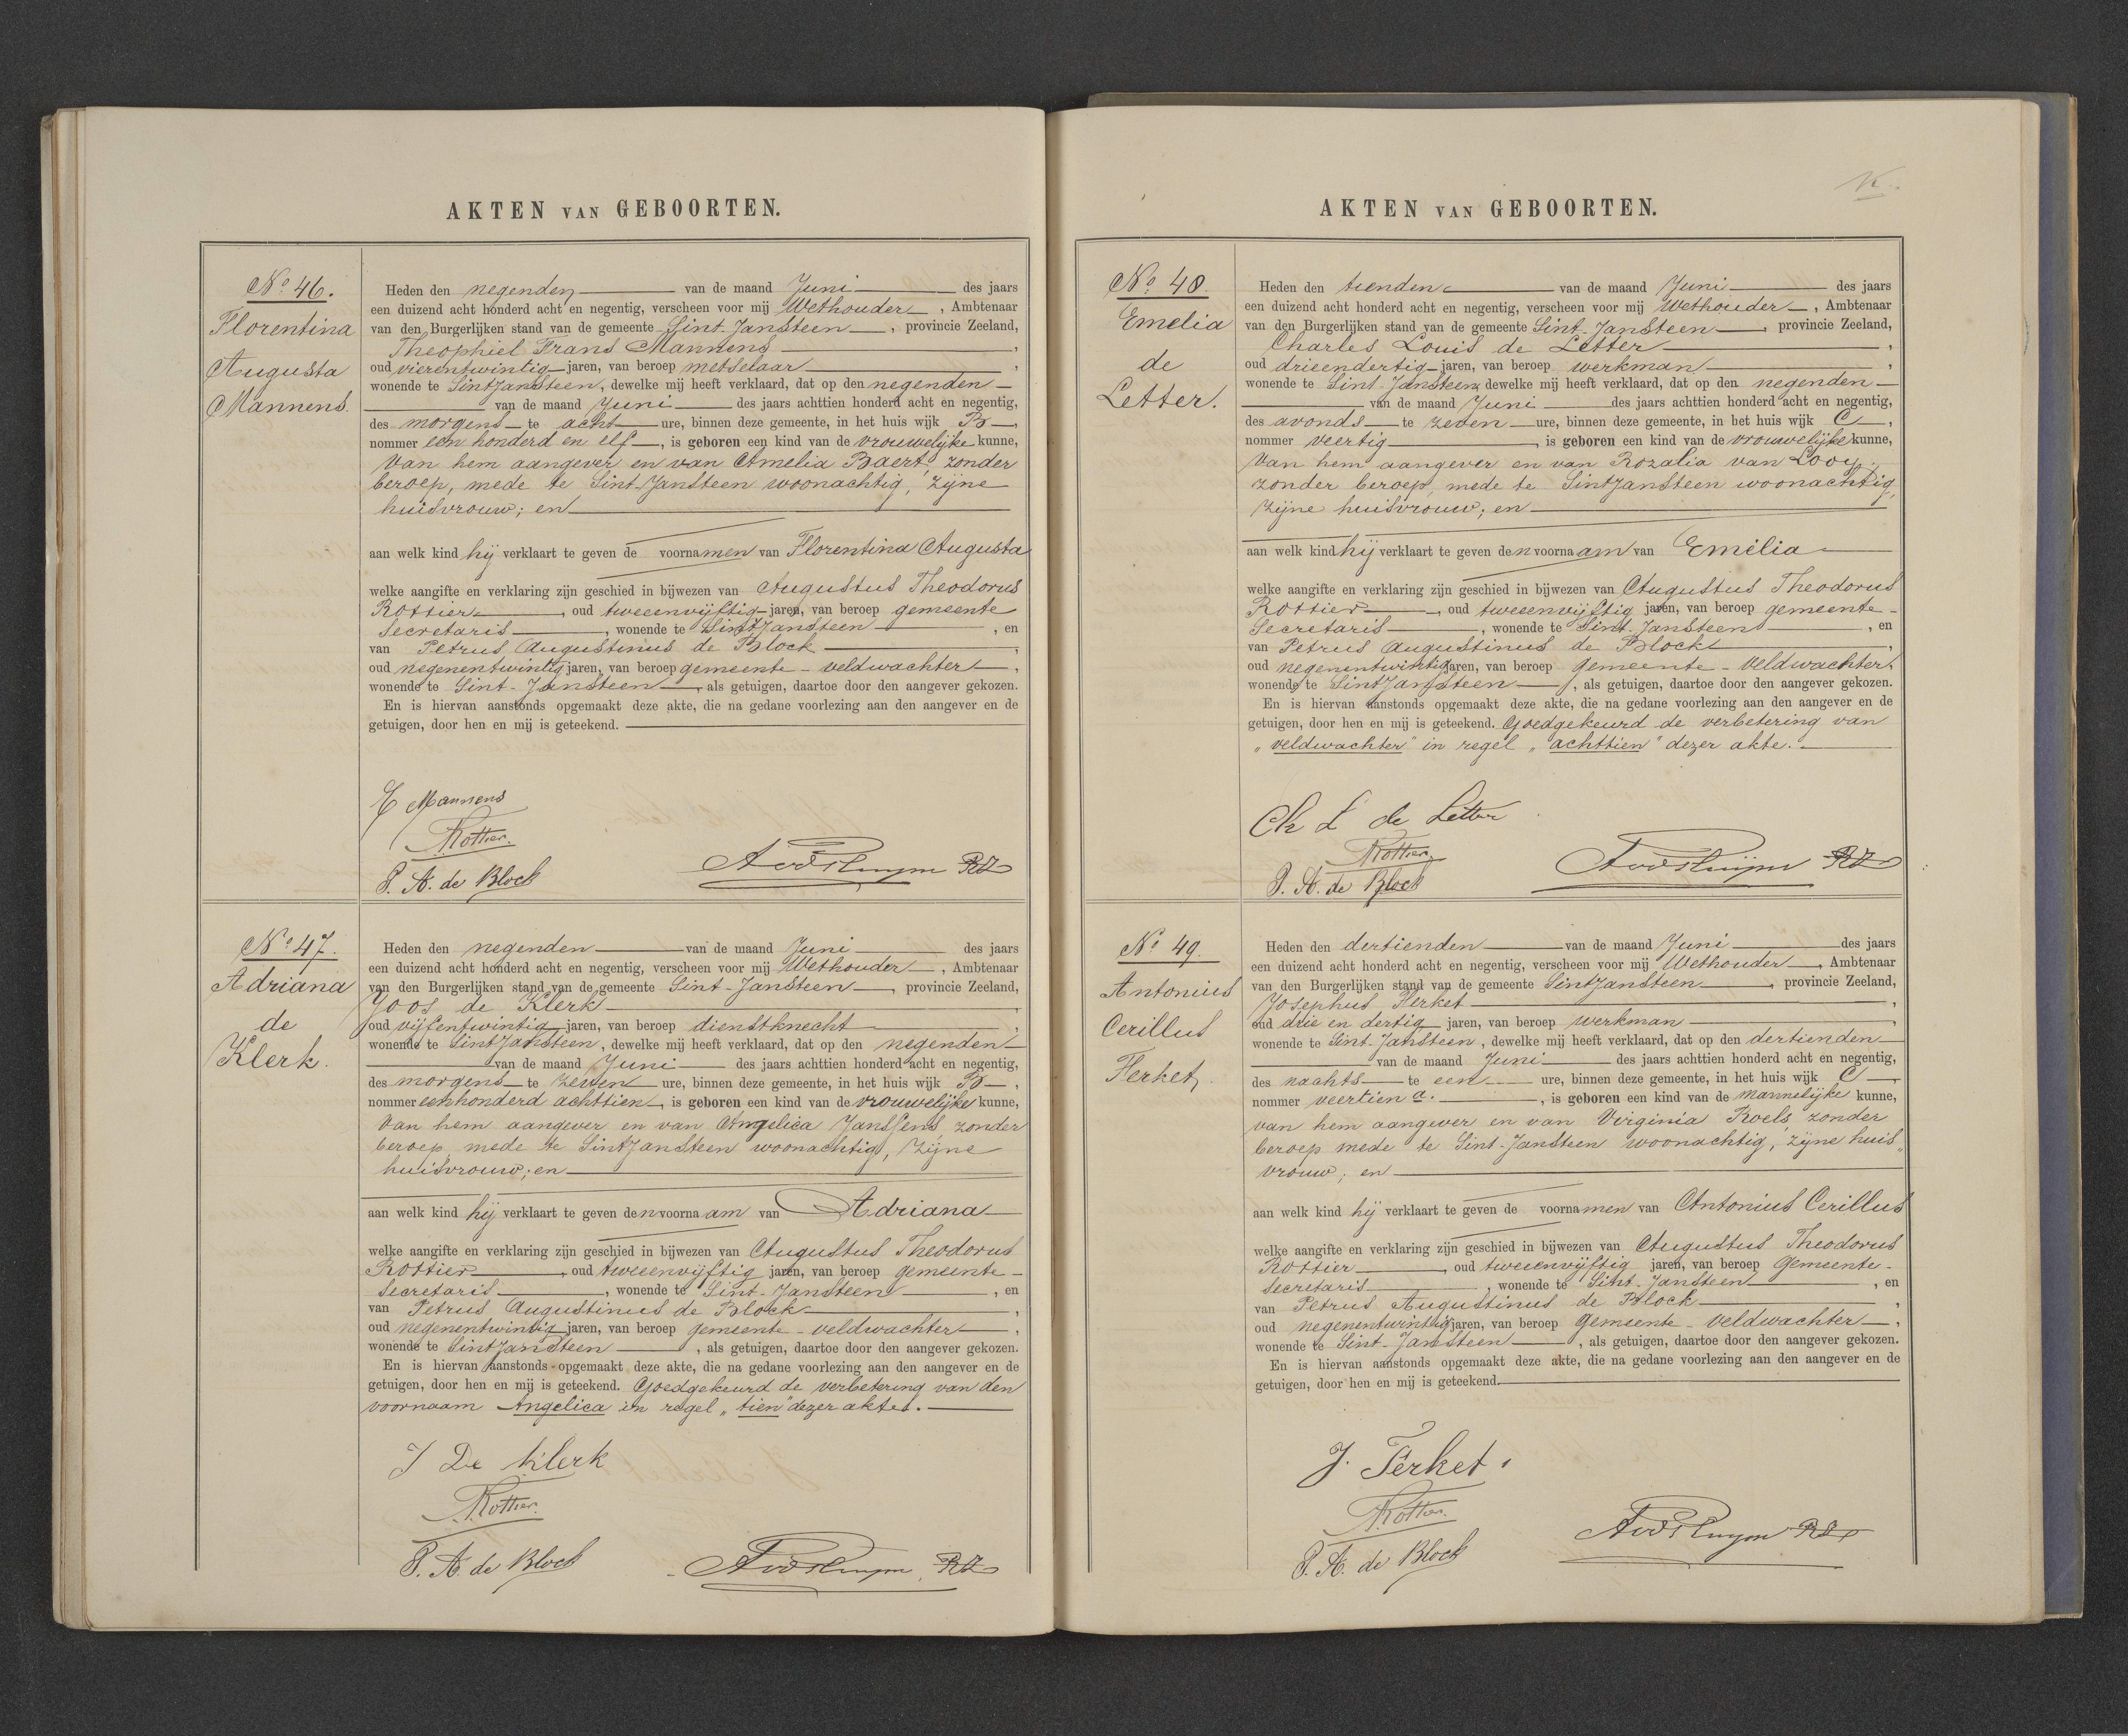 AKTEN VAN GEBOORTEN.
No 46.
Florentina
Augusta
Mannens.
Heden den negenden van de maand Juni des jaars
een duizend acht honderd acht en negentig, verscheen voor mij Wethouder, Ambtenaar
van den Burgerlijken stand van de gemeente Sint-Jansteen, provincie Zeeland,
Theophiel Frans Mannens,
oud vierentwintig jaren, van beroep metselaar,
wonende te Sintjansteen, dewelke mij heeft verklaard, dat op den negenden
van de maand Juni des jaars achttien honderd acht en negentig,
des morgens te acht ure, binnen deze gemeente, in het huis wijk B,
nommer een honderd en elf, is geboren een kind van de vrouwelijke kunne,
van hem aangever en van Amelia Baert, zonder
beroep, mede te Sint-Jansteen woonachtig, zijne
huisvrouw; en
aan welk kind hij verklaart te geven de voornamen van Florentina Augusta
welke aangifte en verklaring zijn geschied in bijwezen van Augustus Theodorus
Rottier, oud tweeenvijftig jaren, van beroep gemeente
secretaris, wonende te Sint Jansteen, en
van Petrus Augustinus de Block,
oud negenentwintig jaren, van beroep gemeente-veldwachter,
wonende te Sint-Jansteen, als getuigen, daartoe door den aangever gekozen.
En is hiervan aanstonds opgemaakt deze akte, die na gedane voorlezing aan den aangever en de
getuigen, door hen en mij is geteekend.
Mannens
Rottier.
P. A. de Block
No 47.
Adriana
de
Klerk.
Heden den negenden van de maand Juni des jaars
een duizend acht honderd acht en negentig, verscheen voor mij Wethouder, Ambtenaar
van den Burgerlijken stand van de gemeente Sint-Jansteen, provincie Zeeland,
Joos de Klerk,
oud vijfentwintig jaren, van beroep dienstknecht,
wonende te Sintjansteen, dewelke mij heeft verklaard, dat op den negenden
van de maand Juni des jaars achttien honderd acht en negentig,
des morgens te zeven ure, binnen deze gemeente, in het huis wijk B,
nommer eenhonderd achttien, is geboren een kind van de vrouwelijke kunne,
van hem aangever en van Angelica Janssens zonder
beroep, mede te Sintjansteen woonachtig, zijne
huisvrouw; en
aan welk kind hij verklaart te geven den voornaam van Adriana
welke aangifte en verklaring zijn geschied in bijwezen van Augustus Theodorus
Rottier, oud tweeenvijftig jaren, van beroep gemeente-
secretaris, wonende te Sint-Jansteen, en
van Petrus Augustinus de Block,
oud negenentwintig jaren, van beroep gemeente-veldwachter,
wonende te Sintjansteen, als getuigen, daartoe door den aangever gekozen.
En is hiervan aanstonds opgemaakt deze akte, die na gedane voorlezing aan den aangever en de
getuigen, door hen en mij is geteekend. Goedgekeurd de verbetering van den
voornaam Angelica in regel „tien" dezer akte.
J De Klerk
Rottier.
P. A. de Block
AKTEN VAN GEBOORTEN.
No 48.
Emelia
de
Letter.
Heden den tienden van de maand Juni des jaars
een duizend acht honderd acht en negentig, verscheen voor mij Wethouder, Ambtenaar
van den Burgerlijken stand van de gemeente Sint-Jansteen, provincie Zeeland,
Charles Louis de Letter,
oud drieendertig jaren, van beroep werkman,
wonende te Sint-Jansteen, dewelke mij heeft verklaard, dat op den negenden
van de maand Juni des jaars achttien honderd acht en negentig,
des avonds te zeven ure, binnen deze gemeente, in het huis wijk C,
nommer veertig, is geboren een kind van de vrouwelijke kunne,
van hem aangever en van Rozalia van Looy,
zonder beroep, mede te Sintjansteen woonachtig,
zijne huisvrouw; en
aan welk kind hij verklaart te geven den voornaam van Emelia
welke aangifte en verklaring zijn geschied in bijwezen van Augustus Theodorus
Rottier, oud tweeenvijftig jaren, van beroep gemeente-
secretaris, wonende te Sint-Jansteen, en
van Petrus Augustinus de Block,
oud negenentwintig jaren, van beroep gemeente-veldwachter
wonende te Sintjansteen, als getuigen, daartoe door den aangever gekozen.
En is hiervan aanstonds opgemaakt deze akte, die na gedane voorlezing aan den aangever en de
getuigen, door hen en mij is geteekend. Goedgekeurd de verbetering van
„veldwachter" in regel „achttien" dezer akte.
Ch L de Letter
Rottier
P. A. de Block
No 49.
Antonius
Cerillus
Ferket.
Heden den dertienden van de maand Juni des jaars
een duizend acht honderd acht en negentig, verscheen voor mij Wethouder, Ambtenaar
van den Burgerlijken stand van de gemeente Sintjansteen, provincie Zeeland,
Josephus Ferket,
oud drie en dertig jaren, van beroep werkman,
wonende te Sint-Jansteen, dewelke mij heeft verklaard, dat op den dertienden
van de maand Juni des jaars achttien honderd acht en negentig,
des nachts te een ure, binnen deze gemeente, in het huis wijk C,
nommer veertien a., is geboren een kind van de mannelijke kunne,
van hem aangever en van Virginia Roels, zonder
beroep mede te Sint-Jansteen woonachtig, zijne huis„
vrouw; en
aan welk kind hij verklaart te geven de voornamen van Antonius Cerillus
welke aangifte en verklaring zijn geschied in bijwezen van Augustus Theodorus
Rottier, oud tweeenvijftig jaren, van beroep gemeente-
secretaris, wonende te Sint-Jansteen, en
van Petrus Augustinus de Block,
oud negenentwintig jaren, van beroep gemeente-veldwachter,
wonende te Sint-Jansteen, als getuigen, daartoe door den aangever gekozen.
En is hiervan aanstonds opgemaakt deze akte, die na gedane voorlezing aan den aangever en de
getuigen, door hen en mij is geteekend.
J. Ferket.
Rottier.
P. A. de Block